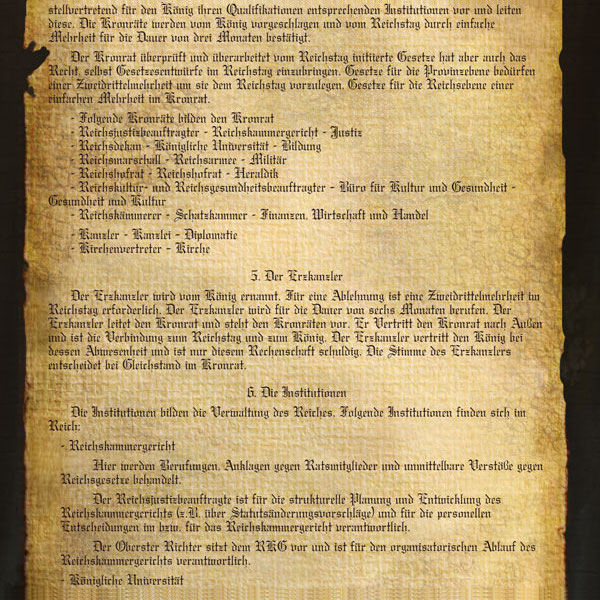 stellvertretend für den König ihren Qualifikationen entsprechenden Institutionen vor und leiten
diese. Die Kronräte werden vom König vorgeschlagen und vom Reichstag durch einfache
Mehrheit für die Dauer von drei Monaten bestätigt.
Der Kronrat überprüft und überarbeitet vom Reichstag initiierte Gesetze hat aber auch das
Recht, selbst Gesetzesentwürfe im Reichstag einzubringen. Gesetze für die Provinzebene bedürfen
einer Zweidrittelmehrheit um sie dem Reichstag vorzulegen. Gesetze für die Reichsebene einer
einfachen Mehrheit im Kronrat.
- Folgende Kronräte bilden den Kronrat
- Reichsjustizbeauftragter - Reichskammergericht - Justiz
- Reichsdekan - Königliche Universität - Bildung
- Reichsmarschall - Reichsarmee - Militär
- Reichshofrat - Reichshofrat - Heraldik
- Reichskultur- und Reichsgesundheitsbeauftragter - Büro für Kultur und Gesundheit -
Gesundheit und Kultur
- Reichskämmerer - Schatzkammer - Finanzen, Wirtschaft und Handel
- Kanzler - Kanzlei - Diplomatie
- Kirchenvertreter - Kirche
5. Der Erzkanzler
Der Erzkanzler wird vom König ernannt. Für eine Ablehnung ist eine Zweidrittelmehrheit im
Reichstag erforderlich. Der Erzkanzler wird für die Dauer von sechs Monaten berufen. Der
Erzkanzler leitet den Kronrat und steht den Kronräten vor. Er Vertritt den Kronrat nach Außen
und ist die Verbindung zum Reichstag und zum König. Der Erzkanzler vertritt den König bei
dessen Abwesenheit und ist nur diesem Rechenschaft schuldig. Die Stimme des Erzkanzlers
entscheidet bei Gleichstand im Kronrat.
6. Die Institutionen
Die Institutionen bilden die Verwaltung des Reiches. Folgende Institutionen finden sich im
Reich:
- Reichskammergericht
Hier werden Berufungen, Anklagen gegen Ratsmitglieder und unmittelbare Verstöße gegen
Reichsgesetze behandelt.
Der Reichsjustizbeauftragte ist für die strukturelle Planung und Entwicklung des
Reichskammergerichts (z.B. über Statutsänderungsvorschläge) und für die personellen
Entscheidungen im bzw. für das Reichskammergericht verantwortlich.
Der Oberster Richter sitzt dem RKG vor und ist für den organisatorischen Ablauf des
Reichskammergerichts verantwortlich.
- Königliche Universität